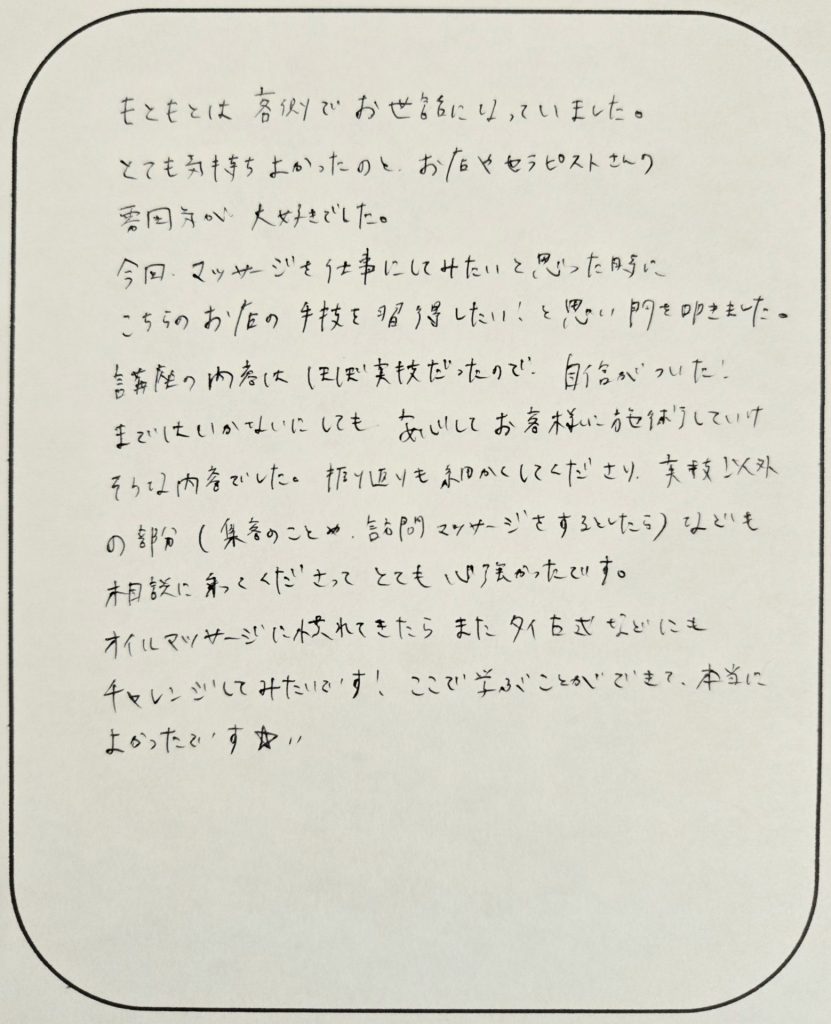 もともとは 客側で お世話になっていました。
とても気持ちよかったのと、お店やセラピストさんの
雰囲気が 大好きでした。
今回、マッサージを仕事にしてみたいと思った時に
こちらのお店の 手技を 習得したい！と思い門を叩きました。
講座の内容は ほぼ実技だったので、自信がついた！
まではいかないにしても、安心してお客様に施術していけ
そうな内容でした。振り返りも細かくしてくださり、実技以外
の部分（集客のことや、訪問マッサージをするとしたら）なども
相談に乗ってくださって とても 心強かったです。
オイルマッサージに慣れてきたら また タイ古式などにも
チャレンジしてみたいです！ここで学ぶことができて、本当に
よかったです☆〃